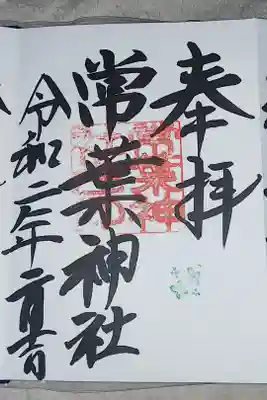 奉拝
常葉神社
令和二年二月吉日